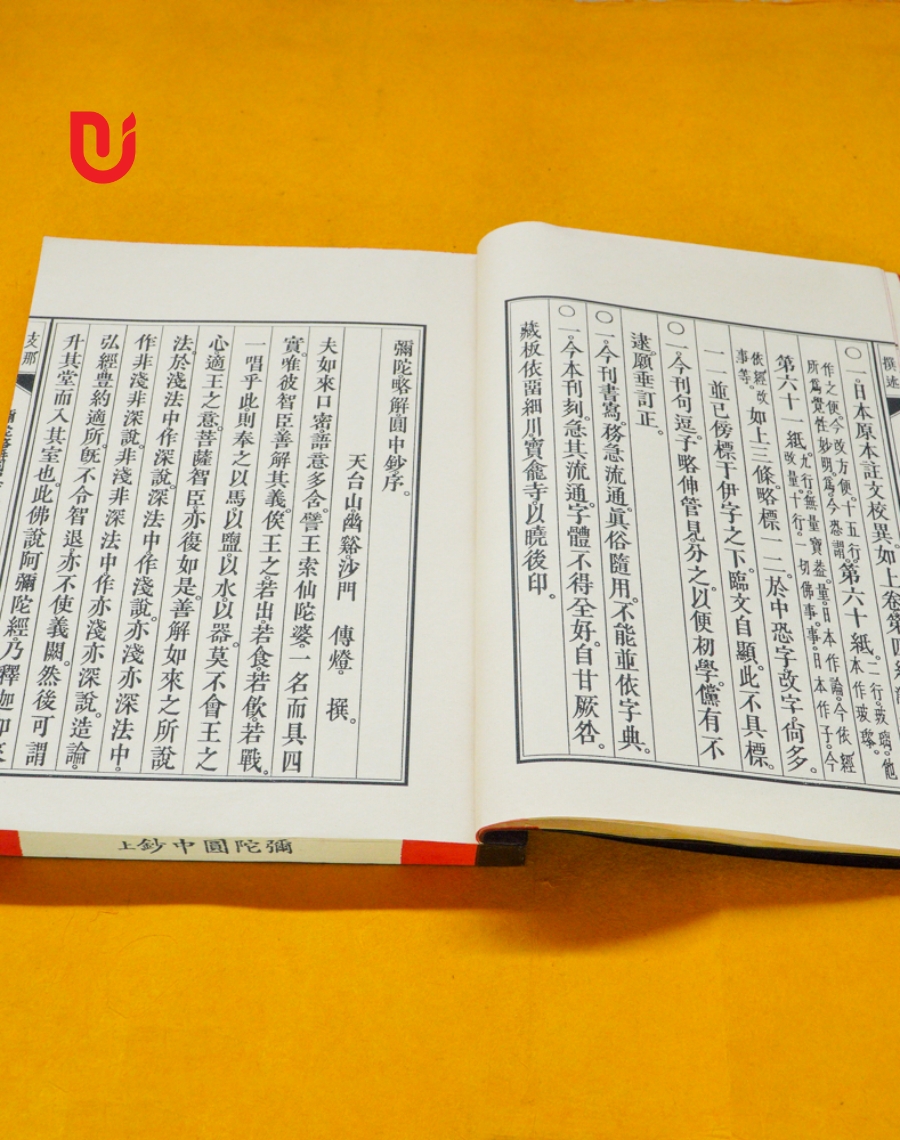 撰述
○一。日本原本註文校異。如上卷第四紙
作之便。今改方便。十五行。第六十紙。二行。玻璃。他本作玻瓈。
所爲覺性妙明。爲。今恐謂。
第六十一紙。九行。無量寶益。量。日本作論。今依經改量。十行。一切佛事。事。日本作子。今依經改事等。
如上三條。略標一二。於中恐字。改字尚多。
一一並已傍標于伊字之下。臨文自顯。此不具標。
○一。今刊句逗。予略伸管見。分之。以便初學。儻有不
逮。願垂訂正。
○一。今刊書寫。務急流通。眞俗隨用。不能並依字典。
○一。今本刊刻。急其流通。字體不得全好。自甘厥咎。
藏板依畱細川。寶龕寺。以曉後印。
彌陀略解圓中鈔。序。
天台山幽谿沙門 傳燈。 撰。
夫如來口密。語意多含。譬王索仙陀婆。一名而具四
實。唯彼智臣。善解其義。俟王之。若出。若食。若飲。若戰。
一唱乎此。則奉之以馬。以鹽。以水。以器。莫不會王之
心。適王之意。菩薩智臣。亦復如是。善解如來之所說
法。於淺法中作深說。深法中。作淺說。亦淺亦深法中。
作非淺非深說。非淺非深法中。作亦淺亦深說。造論。
弘經。豐約適所。旣不令智退。亦不使義闕。然後可謂
升其堂而入其室也。此佛說阿彌陀經。乃釋迦
支那
彌陀圓中鈔上